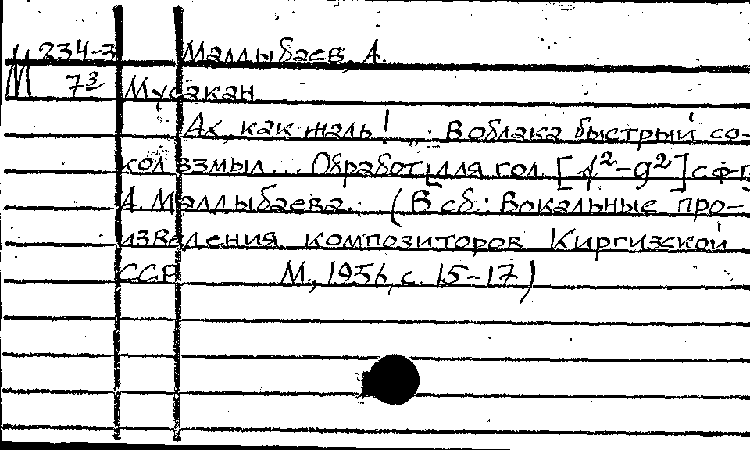 М 234-3 Малдыбаев, А.
7³ Мусакан
Ах, как жаль! ... В облака быстрый со-
кол взмыл... Обработ. для гол. [d²-g²] с ф-п
А. Малдыбаева. (В сб.: Вокальные про-
изведения композиторов Киргизской
ССР М., 1956, с. 15-17)